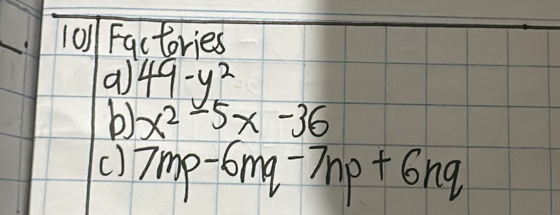 10) Factories
a) 49-y²
b) x² -5x -36
c) 7mp-6mq-7np+6nq